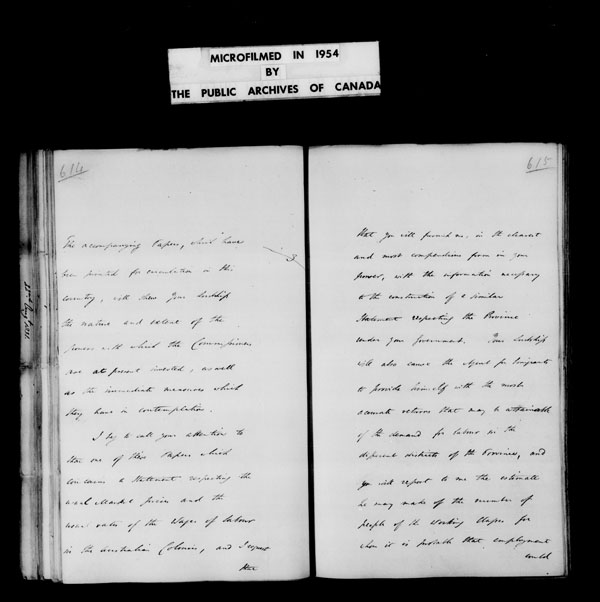 MICROFILMED IN 1954
BY
THE PUBLIC ARCHIVES OF CANADA
614
The accompanying Papers, which have
been printed for circulation in this
country, will shew Your Lordship
the nature and extent of the
powers with which the Commissioners
are at present invested, as well
as the immediate measures which
they have in contemplation.
I beg to call your attention to
that one of these Papers which
contains a Statement respecting the
usual Market prices and the
usual rates of the Wages of labour
in the Australian Colonies, and I request
that
615
that you will furnish me, in the clearest
and most compendious form in your
power, with the information necessary
to the construction of a similar
Statement respecting the Province
under your Government. Your Lordship
will also cause the Agent for Emigrants
to provide himself with the most
accurate returns that may be attainable
of the demand for labour in the
different districts of the Province, and
you will report to me the estimate
he may make of the number of
people of the Working Classes for
whom it is probable that employment
could